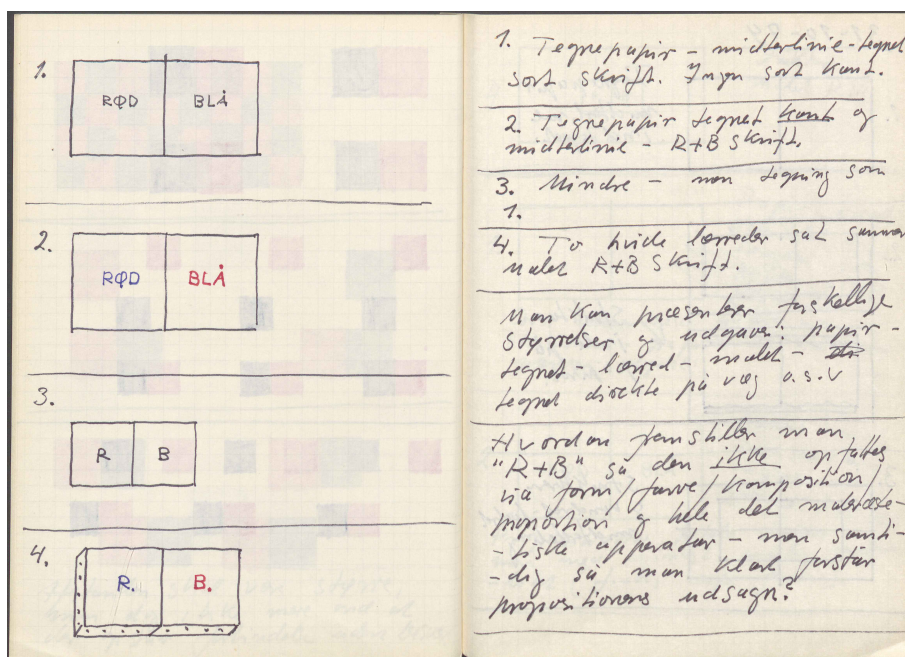 1.
RØD BLÅ
2.
RØD BLÅ
3.
R B
4.
R. B.
1. Tegnepapir – midterlinie – tegnet
sort skrift. Ingen sort kant.
2. Tegnepapir tegnet kant og
midterlinie – R+B skrift.
3. Mindre – men tegning som
1.
4. To hvide lærreder sat sammen
malet R+B skrift.
Man kan præsentere forskellige
størrelser og udgaver: papir –
tegnet – lærred – malet –
tegnet direkte på væg o.s.v
Hvordan fremstiller man
"R+B" så den ikke opfattes
via form/farve/komposition/
proportion og hele det maleræste-
-tiske apparatur – men samti-
-dig så man klart forstår
propositionens udsagn?